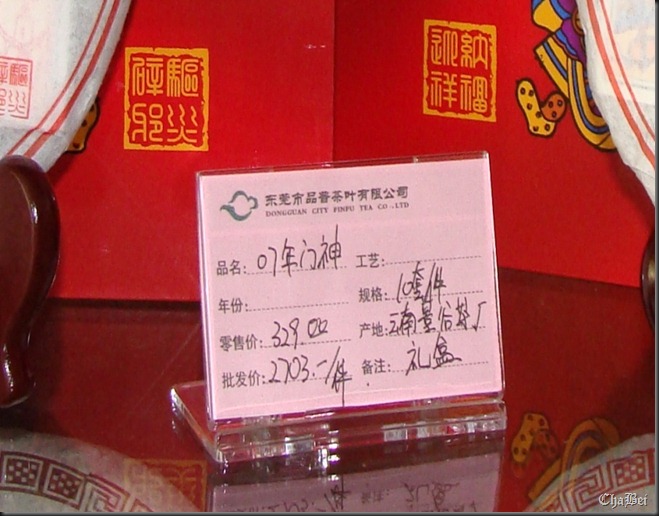 驅災
辟邪
納福
迎祥
东莞市品普茶叶有限公司
DONGGUAN CITY PINPU TEA CO.,LTD
品名: 07年门神
工艺:
年份:
规格: 10套/件
零售价: 329.00
产地: 云南景谷茶厂
批发价: 2703.-/件
备注: 礼盒
ChaBei